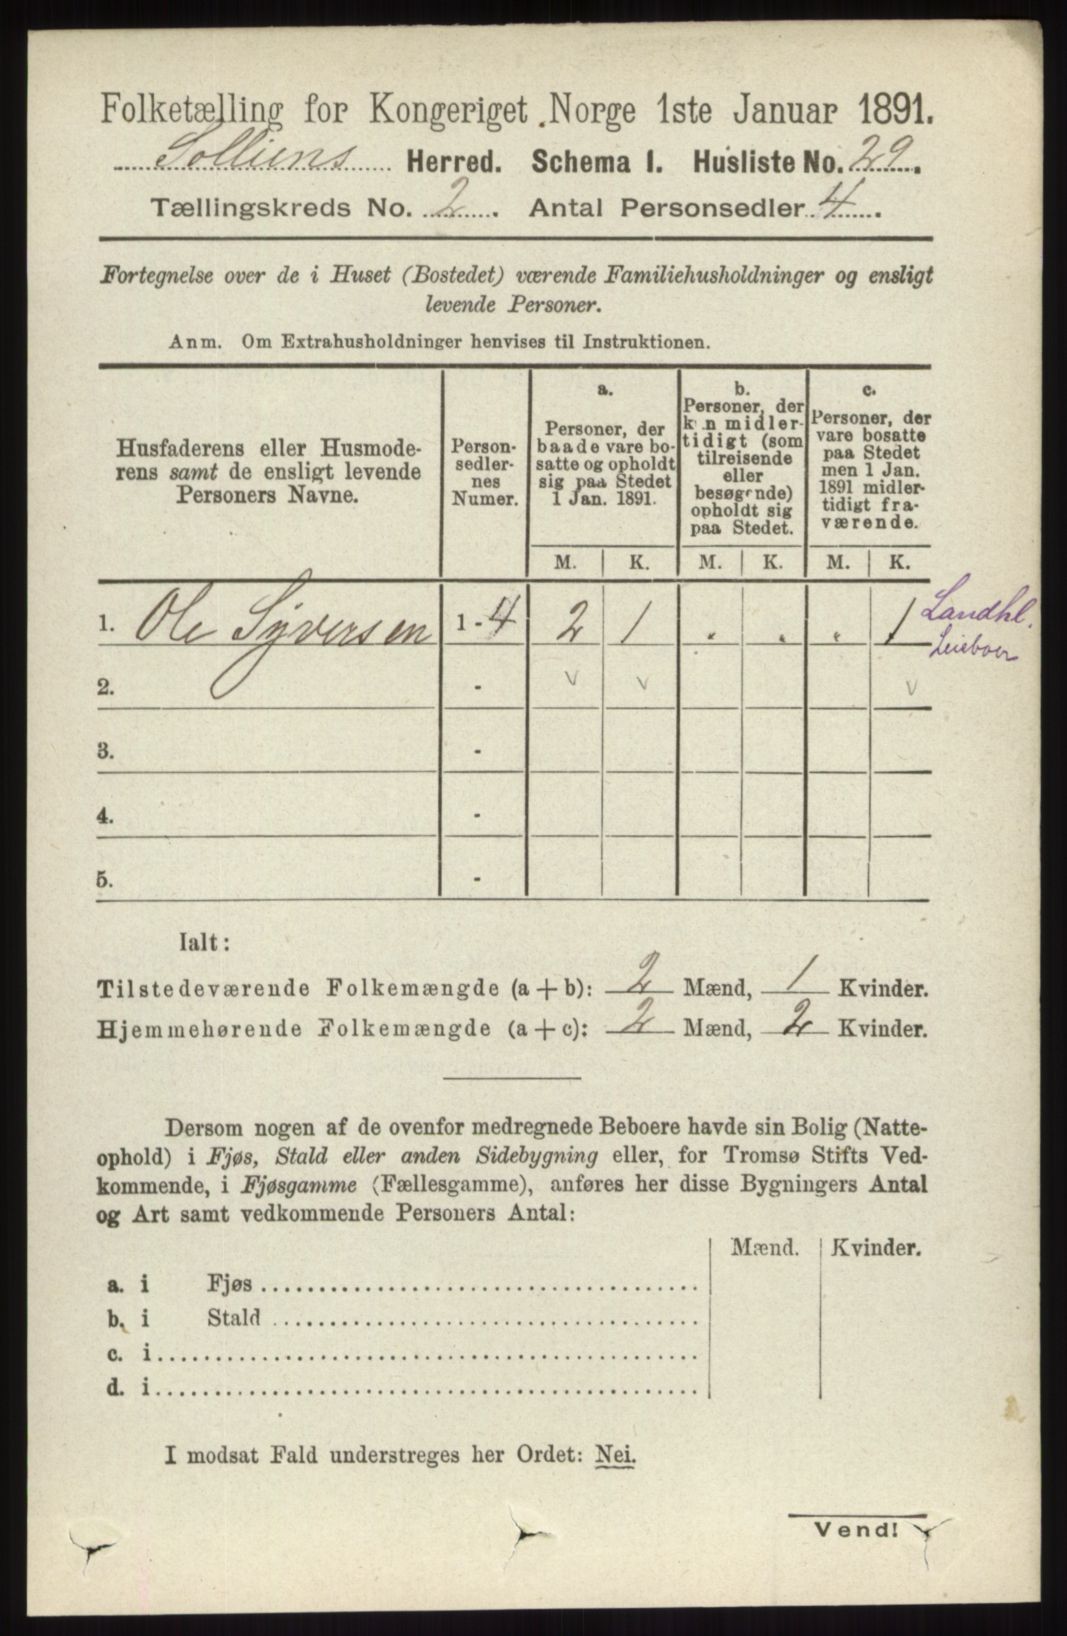 Folketælling for Kongeriget Norge 1ste Januar 1891.
Solliens Herred. Schema I. Husliste No. 29.
Tællingskreds No. 2. Antal Personsedler 4.
Fortegnelse over de i Huset (Bostedet) værende Familiehusholdninger og ensligt
levende Personer.
Anm. Om Extrahusholdninger henvises til Instruktionen.
Husfaderens eller Husmode-
rens samt de ensligt levende
Personers Navne.
Person-
sedler-
nes
Numer.
a.
Personer, der
baade vare bo-
satte og opholdt
sig paa Stedet
1 Jan. 1891.
b.
Personer, der
kun midler-
tidigt (som
tilreisende
eller
besøgende)
opholdt sig
paa Stedet.
c.
Personer, der
vare bosatte
paa Stedet
men 1 Jan.
1891 midler-
tidigt fra-
værende.
M. K. M. K. M. K.
1. Ole Syversen 1 - 4 2 1 . . . 1 Landhl.
Leieboer
2. - v v v
3. -
4. -
5. -
Ialt:
Tilstedeværende Folkemængde (a + b): 2 Mænd, 1 Kvinder.
Hjemmehørende Folkemængde (a + c): 2 Mænd, 2 Kvinder.
Dersom nogen af de ovenfor medregnede Beboere havde sin Bolig (Natte-
ophold) i Fjøs, Stald eller anden Sidebygning eller, for Tromsø Stifts Ved-
kommende, i Fjøsgamme (Fællesgamme), anføres her disse Bygningers Antal
og Art samt vedkommende Personers Antal:
Mænd. Kvinder.
a. i Fjøs
b. i Stald
c. i
d. i
I modsat Fald understreges her Ordet: Nei.
Vend!